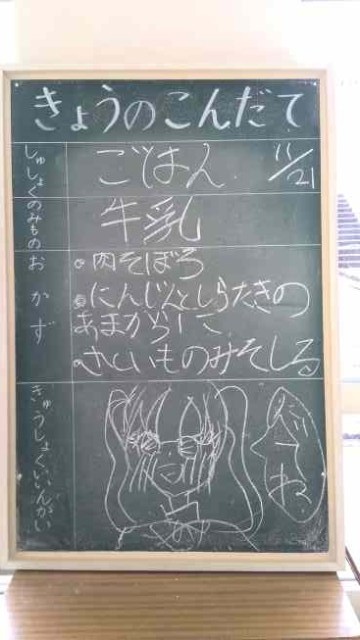 きょうのこんだて
しゅしょく
ごはん
11/21
のみもの
牛乳
おかず
肉そぼろ
にんじんとしらたきの
あまからに
さといものみそしる
きゅうしょくいいんかい